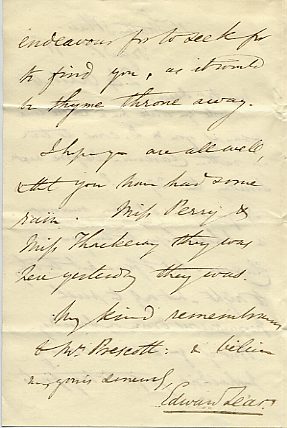 endeavour for to seek for
to find you, as it would
be thyme throne away.
I hope you are all well,
& that you have had some
rain. Miss Perry &
Miss Thackeray they was
here yesterday they was.
My kind remembrances
to Mr. Prescott: &
me, yours sincerely,
Edward Lear.